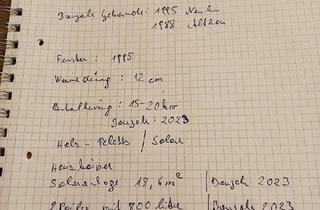 Baujahr Gebäude: 1995 Neubau
1988 Altbau
Fenster: 1995
Wärmedämg: 12 cm
15-20 kw
Baujahr: 2023
Holz-Pellets / Solar
Heizkörper
Solaranlage 18,6 m² / Baujahr 2023
2 Puffer mit 800 liter / Baujahr 2023